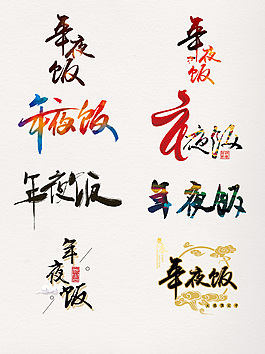 年夜饭
年夜饭
年夜饭
年夜饭
年夜饭
年夜饭
年夜饭
年夜饭